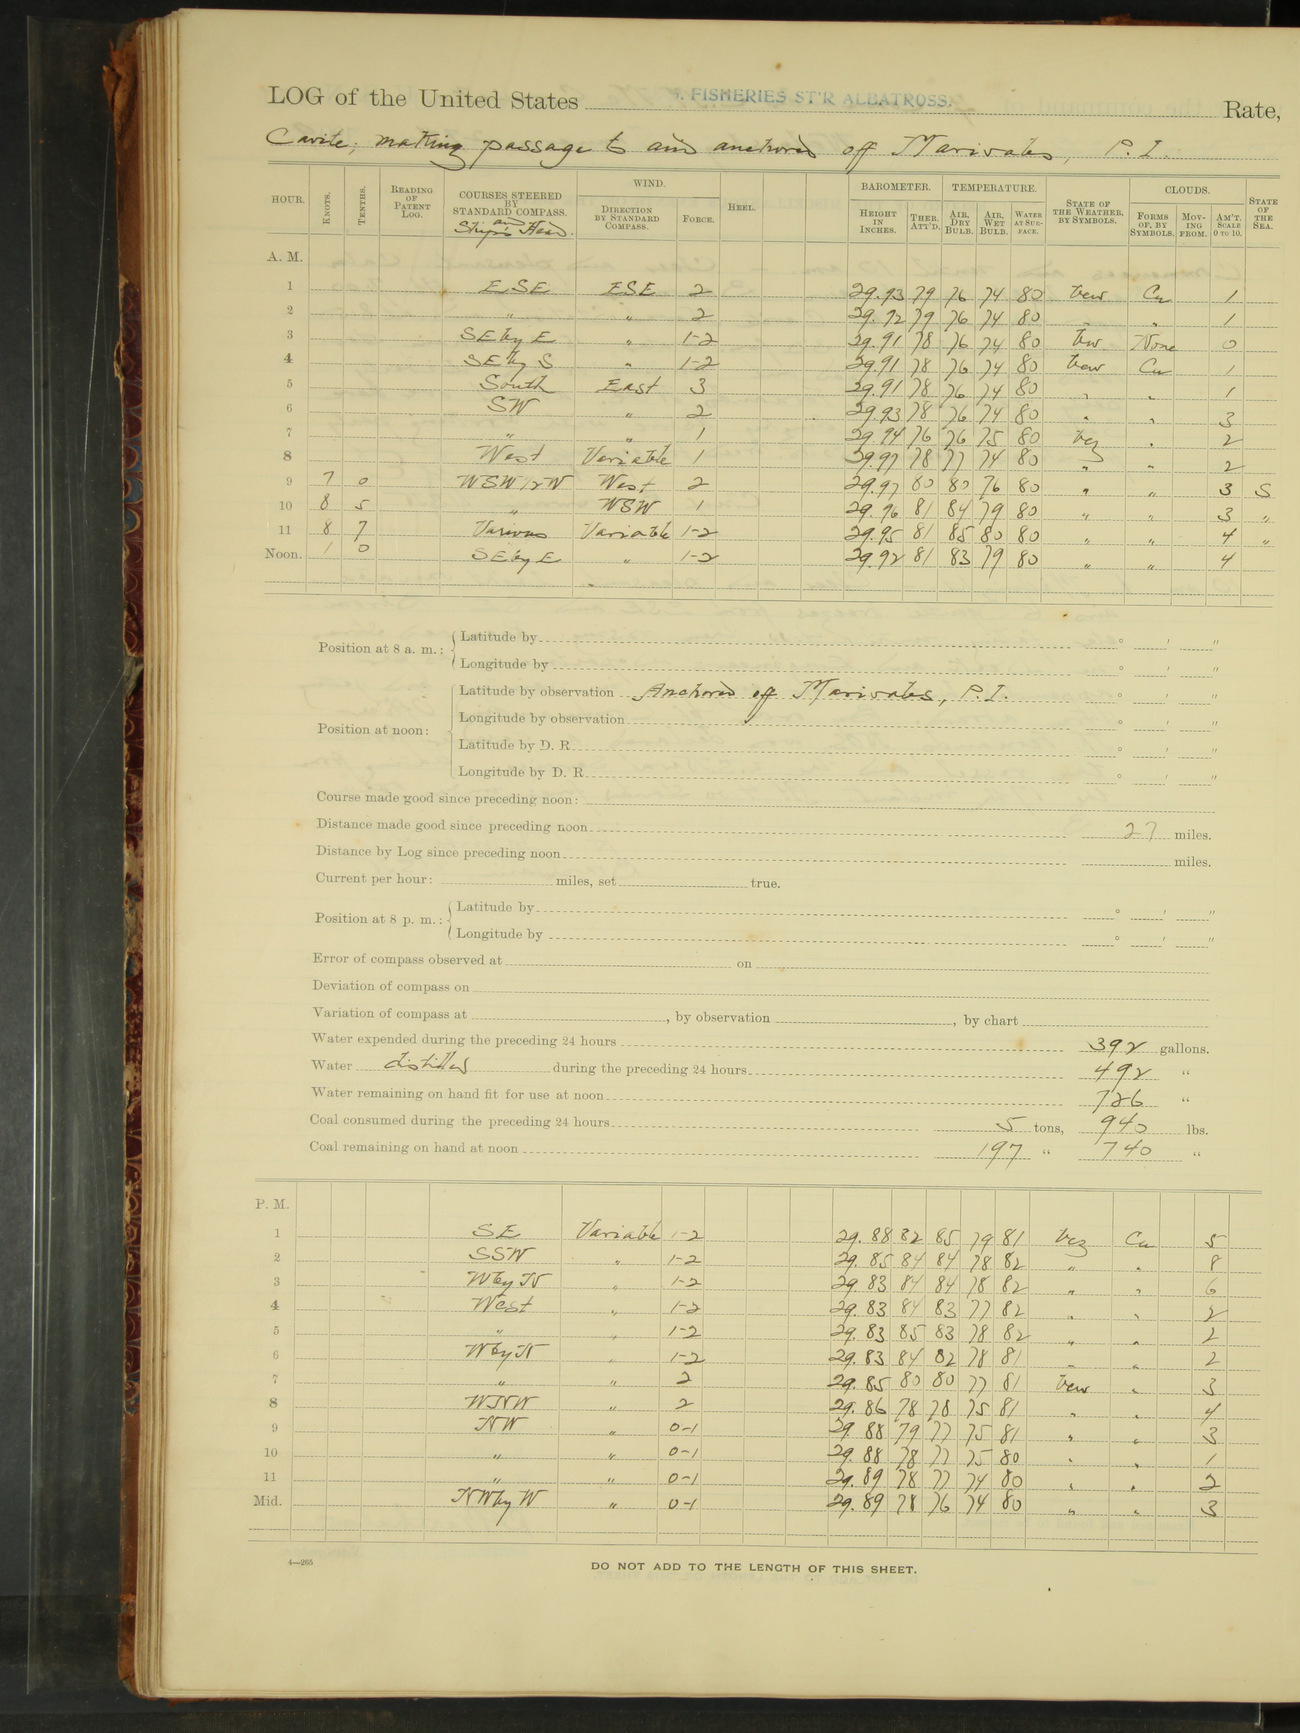 LOG of the United States S. FISHERIES ST'R ALBATROSS. Rate,
Cavite, making passage to and anchored off Marivales, P. I.
HOUR. KNOTS. TENTHS. READING OF PATENT LOG. COURSES STEERED BY STANDARD COMPASS. and Ship's Head. WIND. DIRECTION BY STANDARD COMPASS. FORCE. HEEL. BAROMETER. HEIGHT IN INCHES. THER. ATT'D. TEMPERATURE. AIR, DRY BULB. AIR, WET BULB. WATER AT SURFACE. STATE OF THE WEATHER, BY SYMBOLS. CLOUDS. FORMS OF, BY SYMBOLS. MOVING FROM. AM'T. SCALE 0 TO 10. STATE OF THE SEA.
A. M.
1 ESE ESE 2 29.93 79 76 74 80 bcw Cu 1
2 " " 2 29.92 79 76 74 80 " " 1
3 SE by E " 1-2 29.91 78 76 74 80 bw None 0
4 SE by S " 1-2 29.91 78 76 74 80 bcw Cu 1
5 South East 3 29.91 78 76 74 80 " " 1
6 SW " 2 29.93 78 76 74 80 " " 3
7 " " 1 29.94 76 76 75 80 bcz " 2
8 West Variable 1 29.97 78 77 74 80 " " 2
9 7 0 WSW1/2W West 2 29.97 80 80 76 80 " " 3 S
10 8 5 " WSW 1 29.96 81 84 79 80 " " 3 "
11 8 7 Various Variable 1-2 29.95 81 85 80 80 " " 4 "
Noon. 1 0 SE by E " 1-2 29.92 81 83 79 80 " " 4
Position at 8 a. m.: Latitude by ° ′ ″
Longitude by ° ′ ″
Position at noon: Latitude by observation Anchored off Marivales, P. I. ° ′ ″
Longitude by observation ° ′ ″
Latitude by D. R. ° ′ ″
Longitude by D. R. ° ′ ″
Course made good since preceding noon:
Distance made good since preceding noon 27 miles.
Distance by Log since preceding noon miles.
Current per hour: miles, set true.
Position at 8 p. m.: Latitude by ° ′ ″
Longitude by ° ′ ″
Error of compass observed at on
Deviation of compass on
Variation of compass at , by observation , by chart
Water expended during the preceding 24 hours 392 gallons.
Water distilled during the preceding 24 hours 492 "
Water remaining on hand fit for use at noon 726 "
Coal consumed during the preceding 24 hours 5 tons, 940 lbs.
Coal remaining on hand at noon 197 " 740 "
P. M.
1 SE Variable 1-2 29.88 82 85 79 81 bcz Cu 5
2 SSW " 1-2 29.85 84 84 78 82 " " 8
3 W by N " 1-2 29.83 84 84 78 82 " " 6
4 West " 1-2 29.83 84 83 77 82 " " 2
5 " " 1-2 29.83 85 83 78 82 " " 2
6 W by N " 1-2 29.83 84 82 78 81 " " 2
7 " " 2 29.85 80 80 77 81 bcw " 3
8 WNW " 2 29.86 78 78 75 81 " " 4
9 NW " 0-1 29.88 79 77 75 81 " " 3
10 " " 0-1 29.88 78 77 75 80 " " 1
11 " " 0-1 29.89 78 77 74 80 " " 2
Mid. NW by W " 0-1 29.89 78 76 74 80 " " 3
4—265
DO NOT ADD TO THE LENGTH OF THIS SHEET.